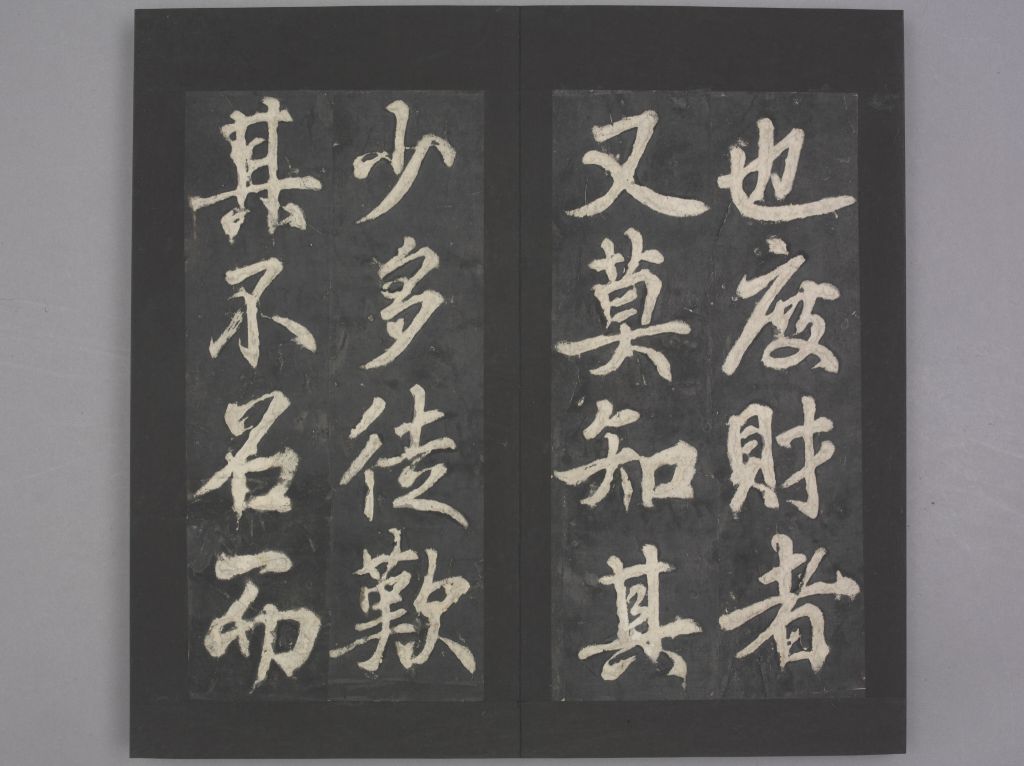 也度財者
又莫知其
少多徒歎
其不召而